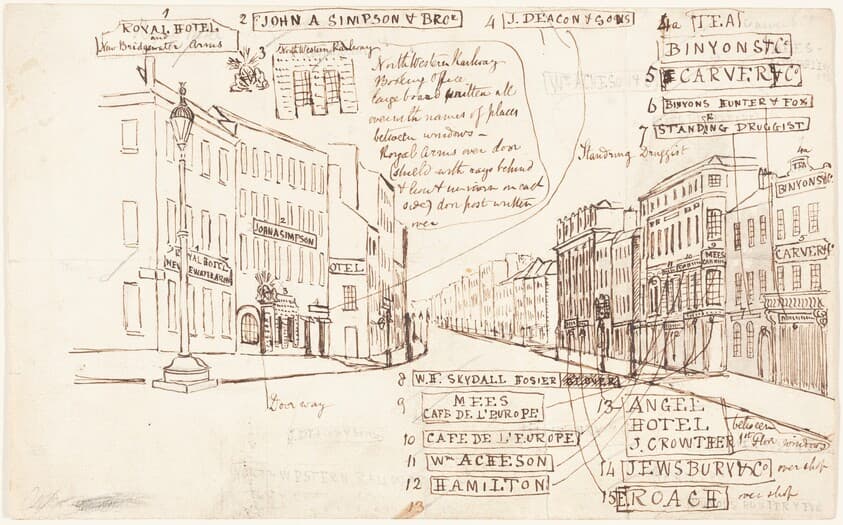 1
ROYAL HOTEL
and
New Bridgewater Arms
2 JOHN A SIMPSON & BROR
3
North Western Railway
North Western Railway
Booking office
large board written all
over with names of places
between windows –
Royal Arms over door
(shield with rays behind
& lion & unicorn on each
side) door post written
over
4 J. DEACON & SONS
4a TEA
BINYONS & Co
5 CARVER & Co
6 BINYONS HUNTER & FOX
7 STANDING DRUGGIST
OR
Standring Druggist
4a
TEA
BINYONS & Co
5
CARVER & Co
2
JOHN A SIMPSON
1
ROYAL HOTEL
NEW
EWATER ARMS
OTEL
9
MEES
Doorway
8 W. H. SKYDALL HOSIER GLOVER
9 MEES
CAFE DE L'EUROPE
10 CAFE DE L'EUROPE
11 Wm ACHESON
12 HAMILTON
13 ANGEL
HOTEL
J. CROWTHER
between
1st floor windows
14 JEWSBURY & Co over shop
15 E. ROACH over shop
13